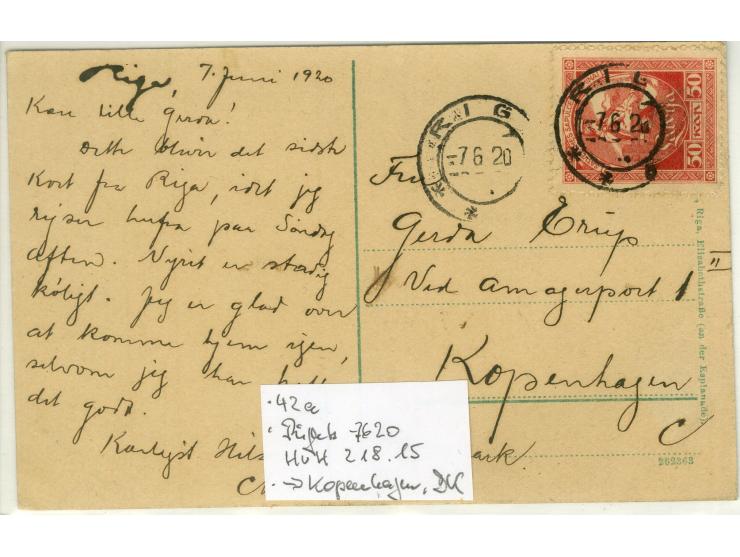 Riga, 7. Juni 1920
Kære lille Gerda!
Dette bliver det sidste
Kort fra Riga, idet jeg
rejser herfra paa Søndag
aften. Vejret er stadig
køligt. Jeg er glad over
at komme hjem igen,
selvom jeg har
det godt.
Kærligst Hils
RIGA
7 6 20
RIGA
7.6 20
50 KAP. 50
Fru
Gerda Erup
Ved Amagerport 1 II
Kopenhagen
C
ark
, Riga, Elisabethstraße (an der Esplanade)
262363
· 42a
7620
HvH 218.15
→ Kopenhagen, DK